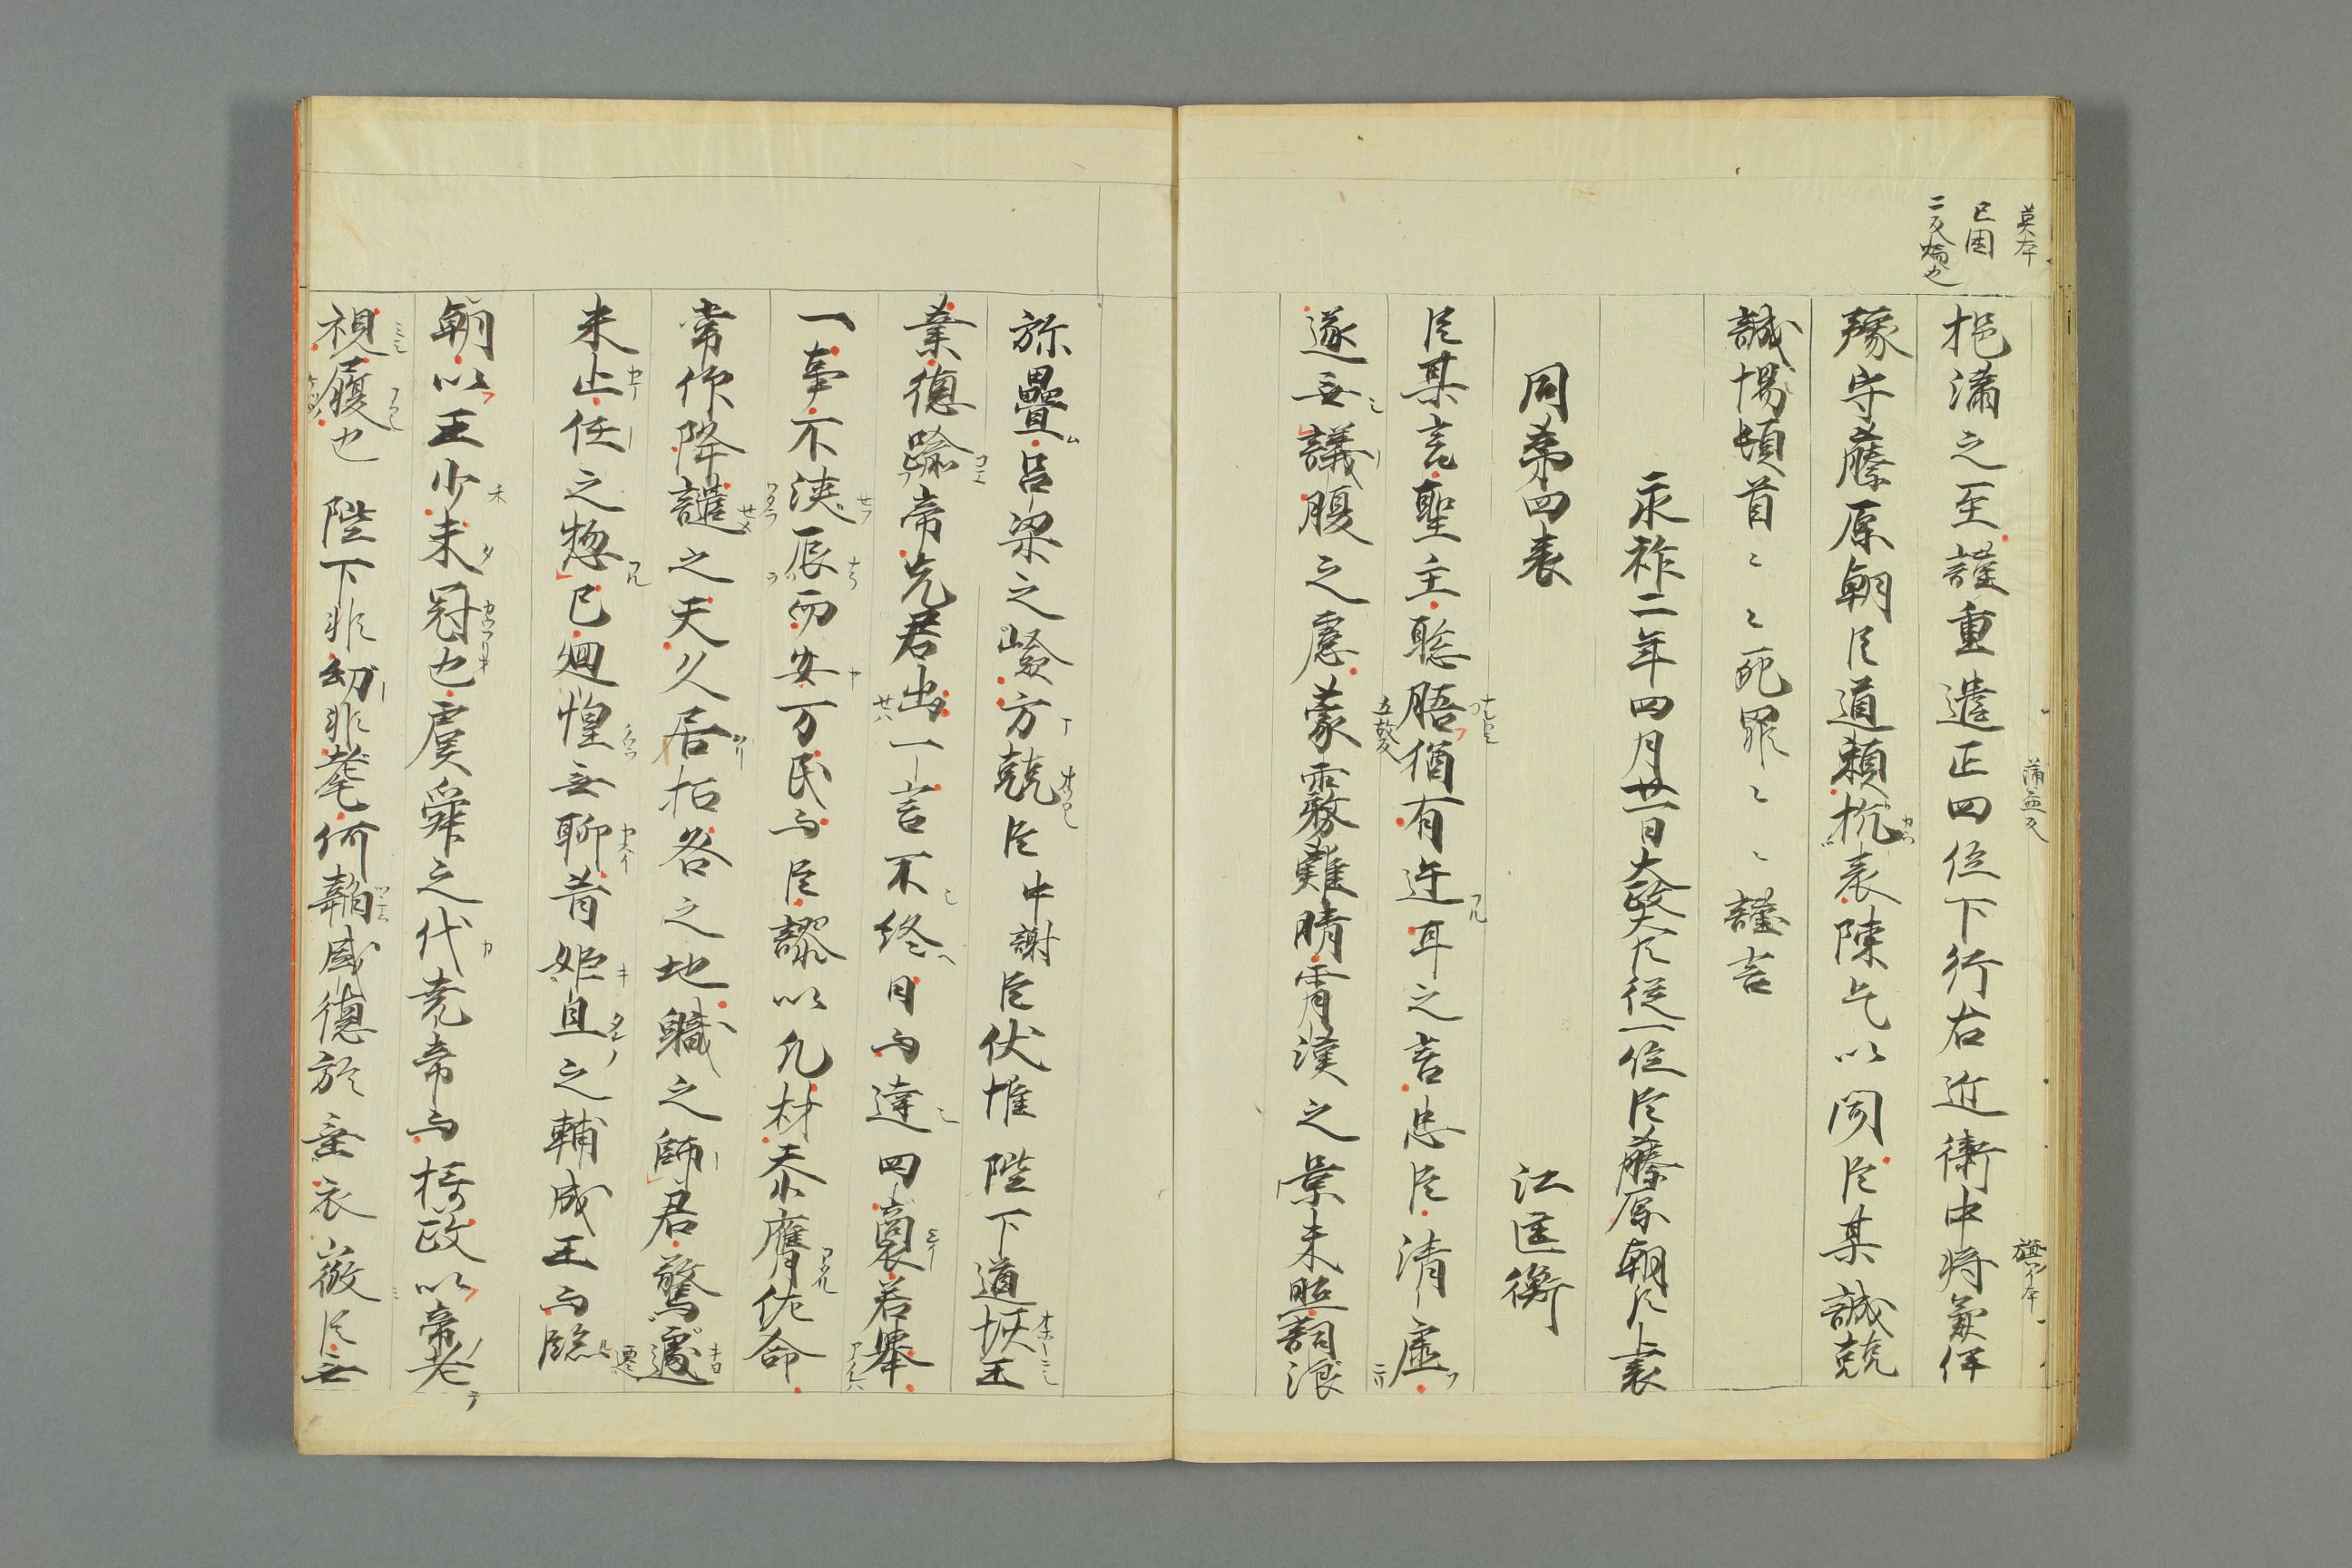 悒満之至謹重遣正四位下行右近衛中将兼伊
豫守藤原朝臣道頼抗表陳乞以聞臣某誠兢
誠惕頓首〻〻死罪〻〻謹言
永祚二年四月廿一日大政大臣従一位臣藤原朝臣上表
同第四表 江匡衡
臣某言聖主聡𦛨猶有迕耳之言忠臣清虚
遂無議腹之慮蒙霧難晴霄漢之景未照詞浪
弥畳呂梁之嶮方兢臣中謝臣伏惟陛下道
業徳踰帝先若出一言不終日而達四裔若挙
一事不浹辰而安万民而臣謬以凡材忝膺佐命
常作降譴之天久居招咎之地職之師君驚遽
未止任之惣己廻惶無聊昔姫旦之輔成王而臨
朝以王少未冠也虞舜之代尭帝而摂政以帝老
視履也 陛下非幼非耄何韜盛徳於垂衣微臣無